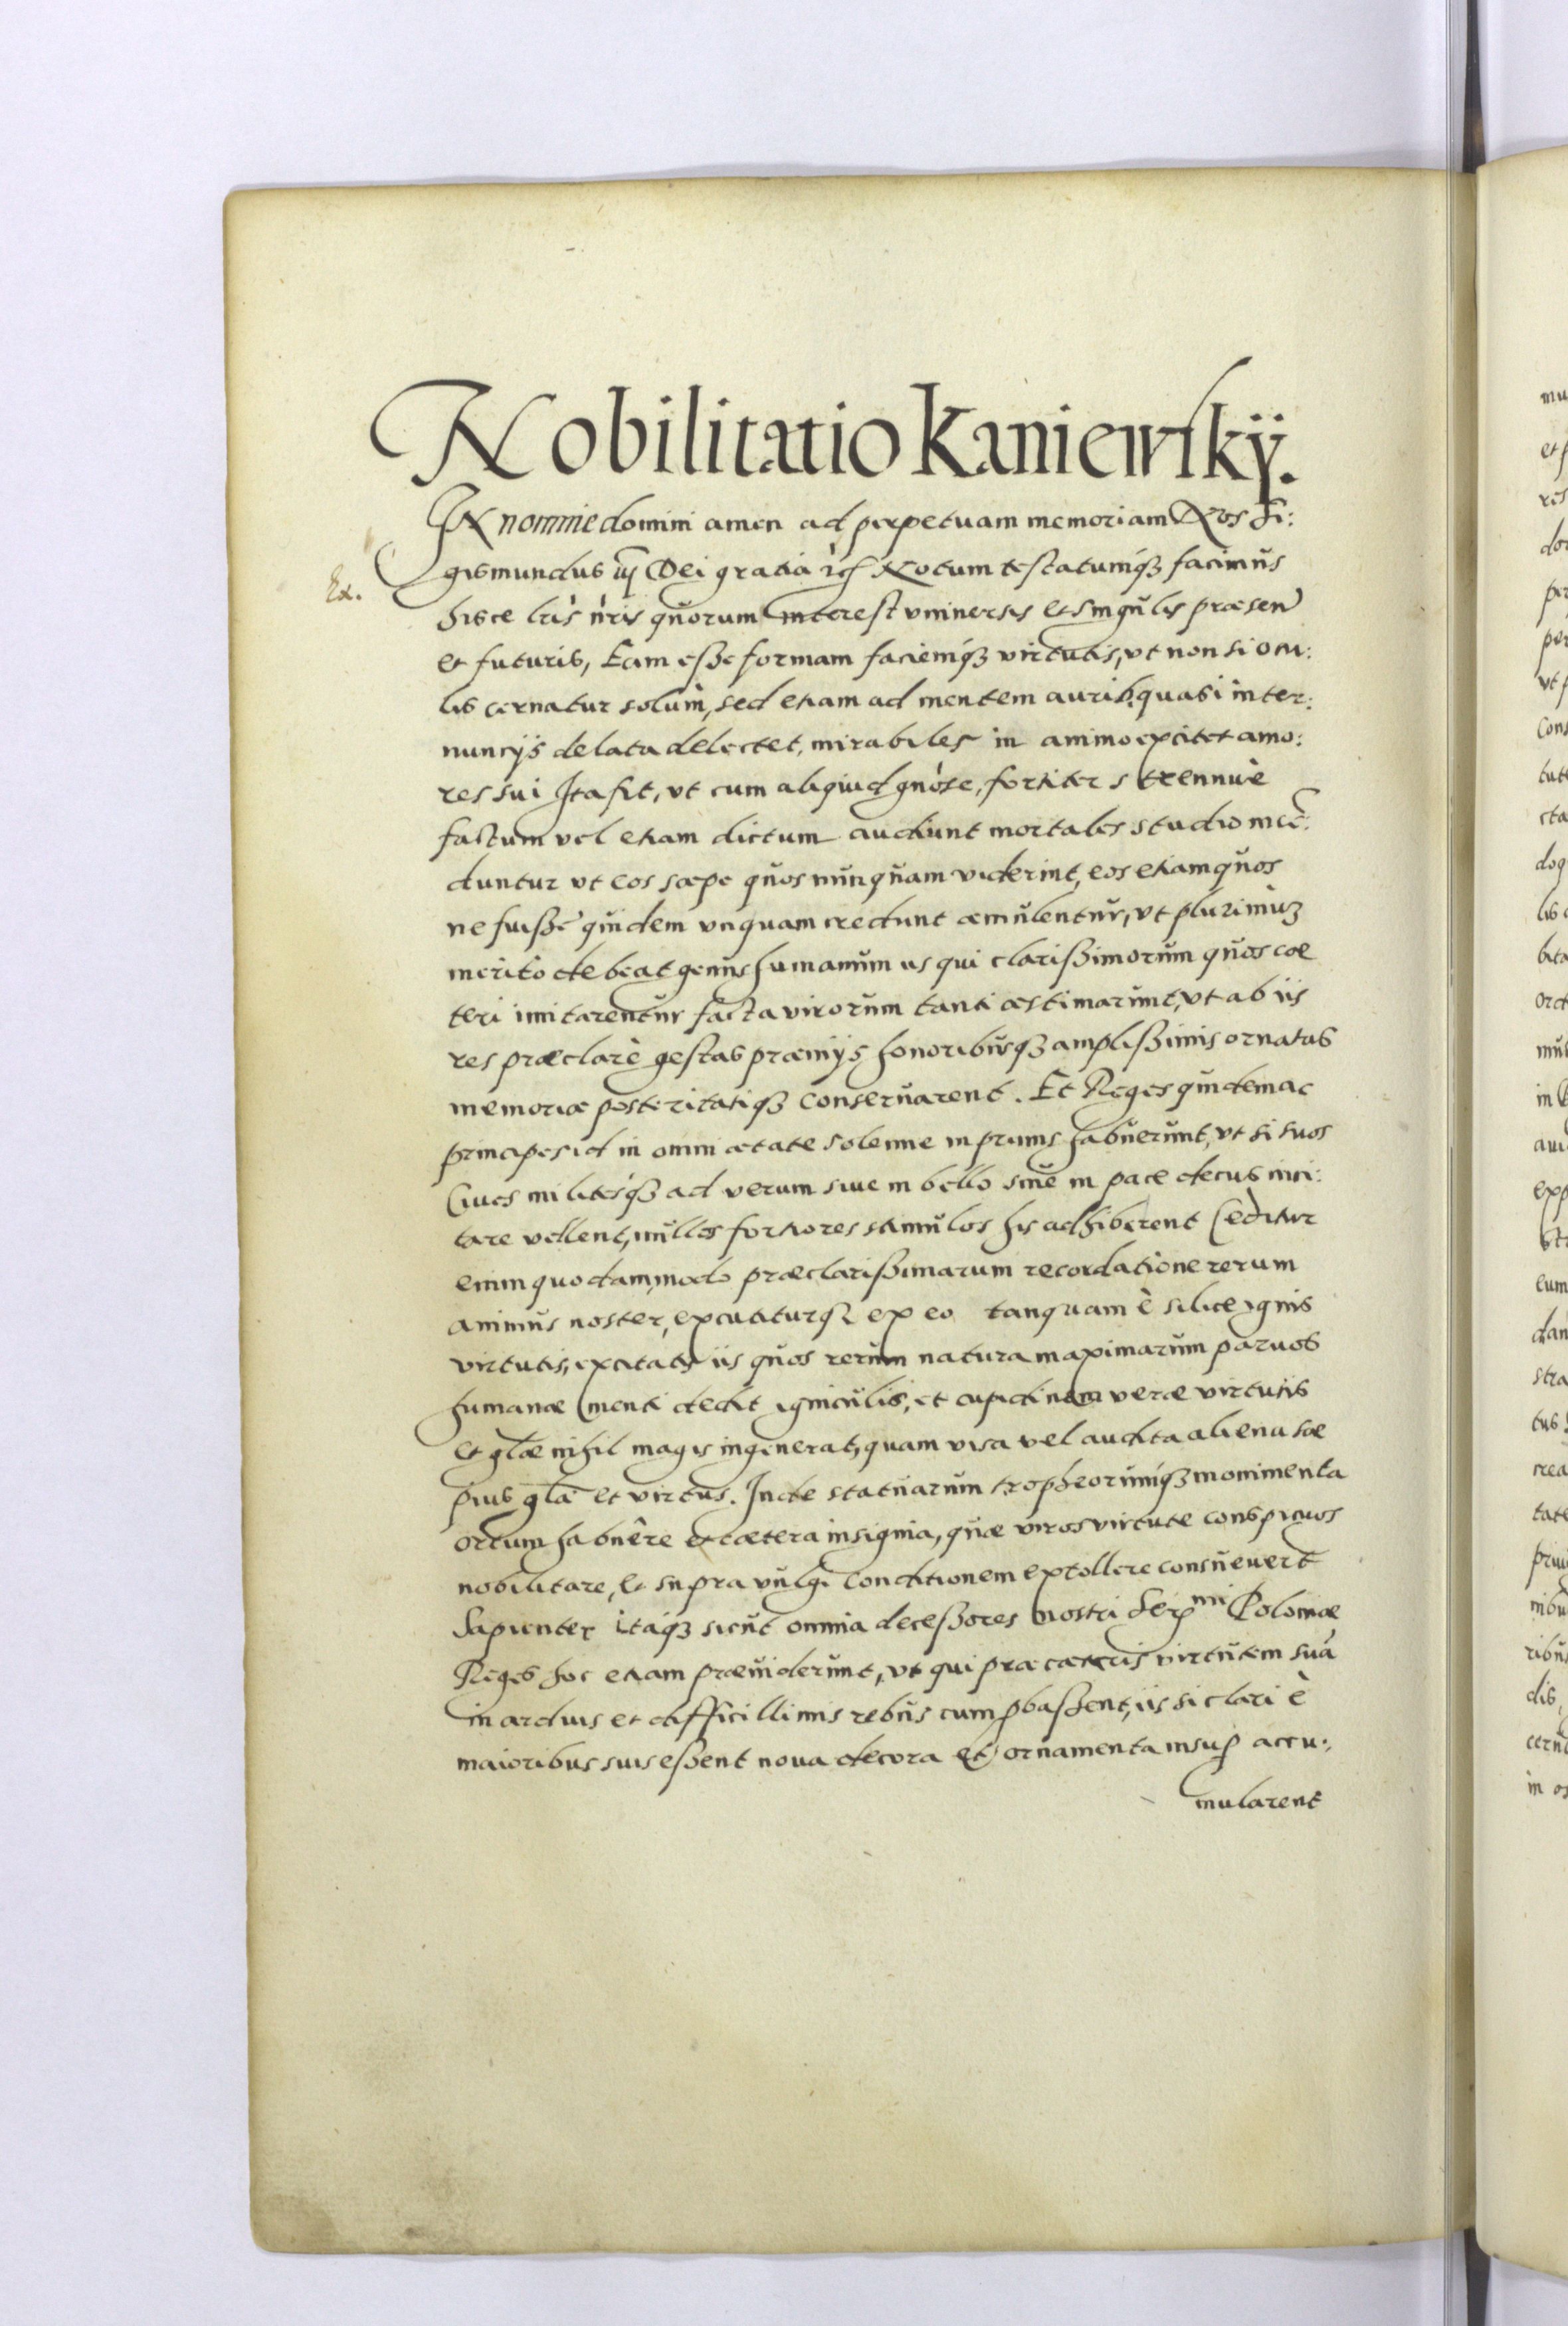 Nobilitatio Kaniewskÿ.
IN nomine domini amen ad perpetuam memoriam Nos Si:
gismundus iij Dei gratia rc̃ Notum testatumq́ꝫ facimus
Ex.
hisce lr̃is nr̃is quorum interest vniuersis et singulis præsen̄
et futuris, Eam eße formam faciemq́ꝫ virtutis, vt non si ocu:
lis cernatur solum̀, sed etiam ad mentem aurib. quasi inter:
nuncijs delata delectet, mirabiles in animo excitet amo:
res sui Ita fit, vt cum aliquid gnőse, fortiter strennuè
factum vel etiam dictum audiunt mortales studio incē:
duntur vt eos sæpe quos nunquam viderint, eos etiam quos
ne fuiße quidem vnquam credunt æmulentur, vt plurimùꝫ
meritò debeat genus humanum iis qui clarißimorum quos cæ
teri imitarentur facta virorum tanti æstimarunt, vt ab iis
res præclarè gestas præmijs honoribusqꝫ amplißimis ornatas
memoriæ posteritatiqꝫ conseruarent. Et Reges quidem ac
principes id in omni ætate solenne in primis habuerunt, vt si suos
Ciues militesq́ꝫ ad verum siue in bello siue in pace decus inci:
tare vellent, nullos fortiores stimulos his adhiberent Ceditur
enim quodammodo præclarißimarum recordatione rerum
animus noster, excutiturqꝫ ex eo tanquam è silice ignis
virtutis, excitatis iis quos rerum natura maximarum paruos
humanæ menti dedit igniculis, et cupidinem veræ virtutis
et gl̃æ nihil magis ingenerat, quam visa vel audita aliena sæ
pius gl̃a et virtus. Inde statuarum tropheorumq́ꝫ monimenta
ortum habuêre et cætera insignia, quæ viros virtute conspicuos
nobilitare, et supra vulgi Conditionem extollere consueuert̃
Sapienter itaqꝫ sicut omnia deceßores nostri Serᵐⁱ Poloniæ
Reges hoc etiam præuiderunt, vt qui præ cæteris virtutem suā
in arduis et difficillimis rebus cum ꝓbaßent, iis si clari è
maioribus suis eßent noua decora et ornamenta insuꝑ accu:,
mularent